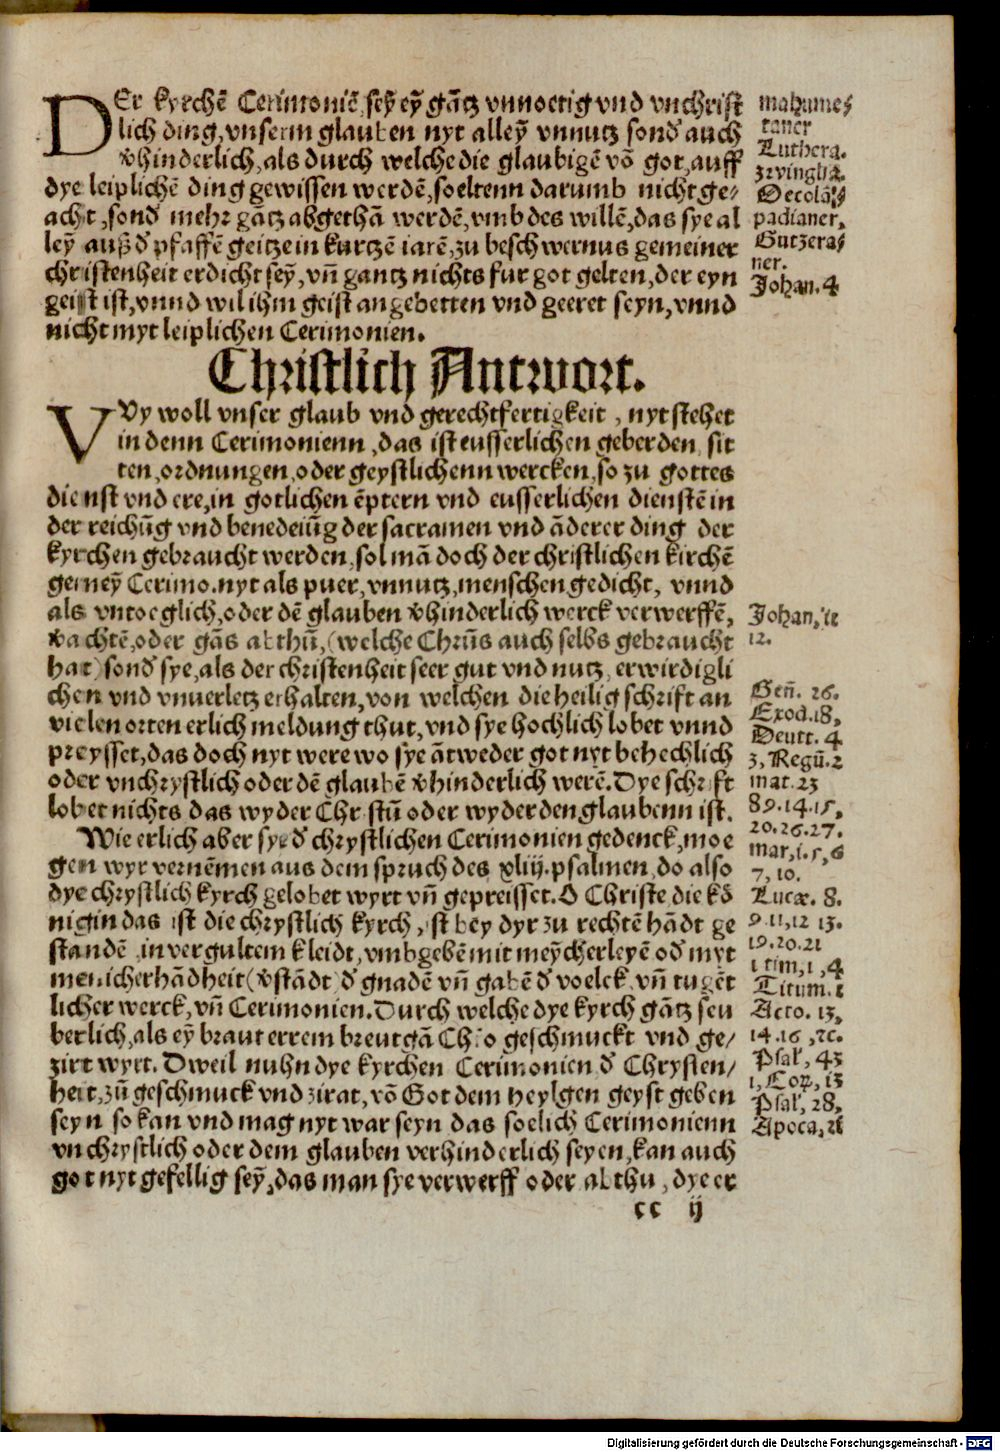 DEr kyrchē Cerimoniē, sey̅ ey̅ gātz vnnoetig vnd vnchrist
lich ding, vnserm glauben nyt alley̅ vnnutz sond̕ auch
v̕hinderlich, als durch welche die glaubigē vō got, auff
dye leiplichē ding gewissen werdē, soeltenn darumb nicht ge⸗
acht, sond̕ mehr gātz abgethā werdē, vmb des willē, das sye al
ley̅ auß d̕ pfaffē geitze in kurtzē iarē, zu beschwernus gemeiner
christenheit erdicht sey̅, vn̄ gantz nichts fur got gelten, der eyn
geist ist, vnnd wil ihm geist angebetten vnd geeret seyn, vnnd
nicht myt leiplichen Cerimonien.
mahume⸗
taner
Luthera.
zwinglia.
Oecolā⸗
padianer,
Butzera⸗
ner.
Johan. 4
Christlich Antwort.
VVy woll vnser glaub vnd gerechtfertigkeit, nyt stehet
in denn Cerimonienn, das ist eusserlichen geberden, sit
ten, ordnungen, oder geystlichenn wercken, so zu gottes
dienst vnd ere, in gotlichen ēptern vnd eusserlichen dienstē in
der reichūg vnd benedeiūg der sacramen vnd āderer ding der
kyrchen gebraucht werden, sol mā doch der christlichen kirchē
gemey̅ Cerimo. nyt als puer, vnnutz, menschen gedicht, vnnd
als vntoeglich, oder dē glauben v̕hinderlich werck verwerffē,
v̕achtē, oder gās abthū, (welche Chrūs auch selbs gebraucht
hat) sond̕ sye, als der christenheit seer gut vnd nutz, erwirdigli
chen vnd vnuerletz erhalten, von welchen die heilig schrift an
vielen orten erlich meldung thut, vnd sye hochlich lobet vnnd
preysset, das doch nyt were wo sye ātweder got nyt behechlich
oder vnchrystlich oder dē glaubē v̕hinderlich werē. Dye schrift
lobet nichts das wyder Christū oder wyder den glaubenn ist.
Wie erlich aber sye d̕ chrystlichen Cerimonien gedenck, moe
gen wyr vernēmen aus dem spruch des xliij. psalmen, do also
dye chrystlich kyrch gelobet wyrt vn̄ gepreisset. O Christe, die kō
nigin das ist die chrystlich kyrch, ist bey dyr zu rechtē hādt ge
standē, in vergultem kleidt, vmbgebē mit mey̅cherleyē od̕ myt
menicherhādheit (v̕stādt) d̕ gnadē vn̄ gabē d̕ voelck, vn̄ tugēt
licher werck, vn̄ Cerimonien. Durch welche dye kyrch gātz seu
berlich, als ey̅ braut errem breutgā Chro geschmuckt vnd ge⸗
zirt wyrt. Dweil nuhn dye kyrchen Cerimonien d̕ Chrysten⸗
heit, zū geschmuck vnd zirat, vō Got dem heylgen geyst geben
seyn so kan vnd mag nyt war seyn das soelich Cerimonienn
vnchrystlich oder dem glauben verhinderlich seyen, kan auch
got nyt gefellig sey̅, das man sye verwerff oder abthu, dye er
Johan. 11
12.
Gen̄. 26.
Exod. 18,
Deutt. 4
3, Regū. 2
mat. 23
8 9. 14. 15,
20. 26. 27.
mar, 1. 5, 6
7, 10.
Lucæ. 8.
9. 11, 12 13.
19. 20. 21
1 tim, 1, 4
Titum. 1
Acto. 13,
14. 16, ꝛc.
Psal, 43
1, Cor, 13
Psal, 28,
Apoca, 21
cc ij
Digitalisierung gefördert durch die Deutsche Forschungsgemeinschaft - DFG